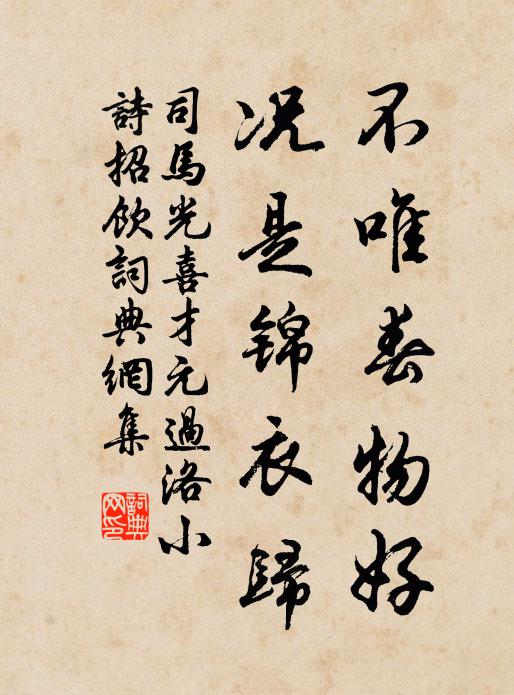 不唯春物好
况是锦衣歸
司馬光喜才元過洛小
詩招飲詞典網集
詞典网印